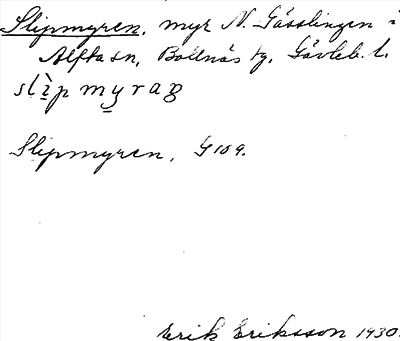 Slipmyren, myr N. Gässlingen i
Alfta sn, Bollnäs tg, Gävleb. l.
slìp myraṇ
Slipmyren, G 109.
Erik Eriksson 1930.